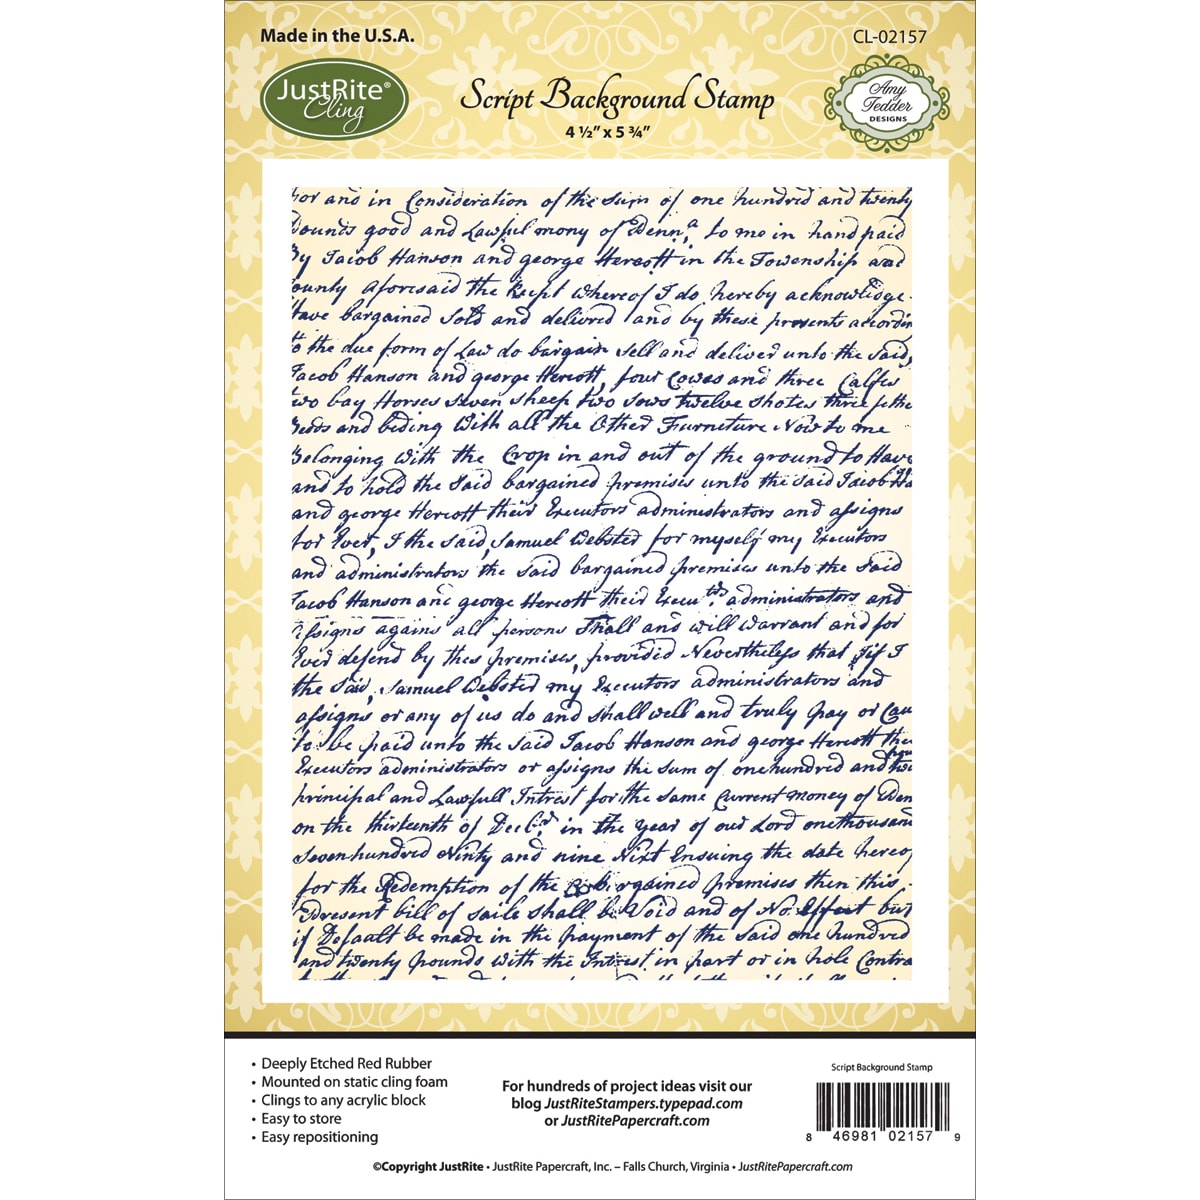 Made in the U.S.A.
CL-02157
JustRite®
Cling
Script Background Stamp
4 ½" x 5 ¾"
Amy
Tedder
DESIGNS
for and in Consideration of the Sum of one hundred and twenty
pounds good and Lawful mony of to me in hand paid
By Jacob Hanson and george Hercott in the Township and
county aforesaid the Rec̣eipt whereof I do hereby acknowlidge
Have bargained Sold and delivred and by these presents accordin
to the due form of Law do bargain sell and deliver unto the Said,
Jacob Hanson and george Hercott, four Cowes and three Calfes
two bay Horses seven sheep two sows twelve shotes three
Bedds and beding with all the Other Furneture Now to me
Belonging with the Crop in and out of the ground to Have
and to hold the Said bargained premises unto the Said Jacob Ha
and george Hercott their Executors administrators and assigns
for Ever, I the said, Samuel Webster for myself my Executors
and administrators the Said bargained premises unto the Said
Jacob Hanson and george Hercott their Execu administrators and
Assigns agains all persons Shall and will warrant and for
Ever defend by thes premises, provided Nevertheless that if I
the Said, Samuel Webster my Executors administrators and
assigns or any of us do and shall well and truly pay or Cau
to be paid unto the Said Jacob Hanson and george Hercott
Executors administrators or assigns the sum of one hundred and
principal and Lawfull Intrest for the same Current money of
on the thirteenth of in the year of our Lord one thousand
Seven hundred Ninty and nine Next Ensuing the date hereof
for the Redemption of the bargained premises then this
present bill of saile shall be Void and of No Effect but
if Default be made in the payment of the said one hundred
and twenty pounds with the Intrest in part or in hole Contra
• Deeply Etched Red Rubber
• Mounted on static cling foam
• Clings to any acrylic block
• Easy to store
• Easy repositioning
For hundreds of project ideas visit our
blog JustRiteStampers.typepad.com
or JustRitePapercraft.com
Script Background Stamp
8 46981 02157 9
©Copyright JustRite • JustRite Papercraft, Inc. – Falls Church, Virginia • JustRitePapercraft.com